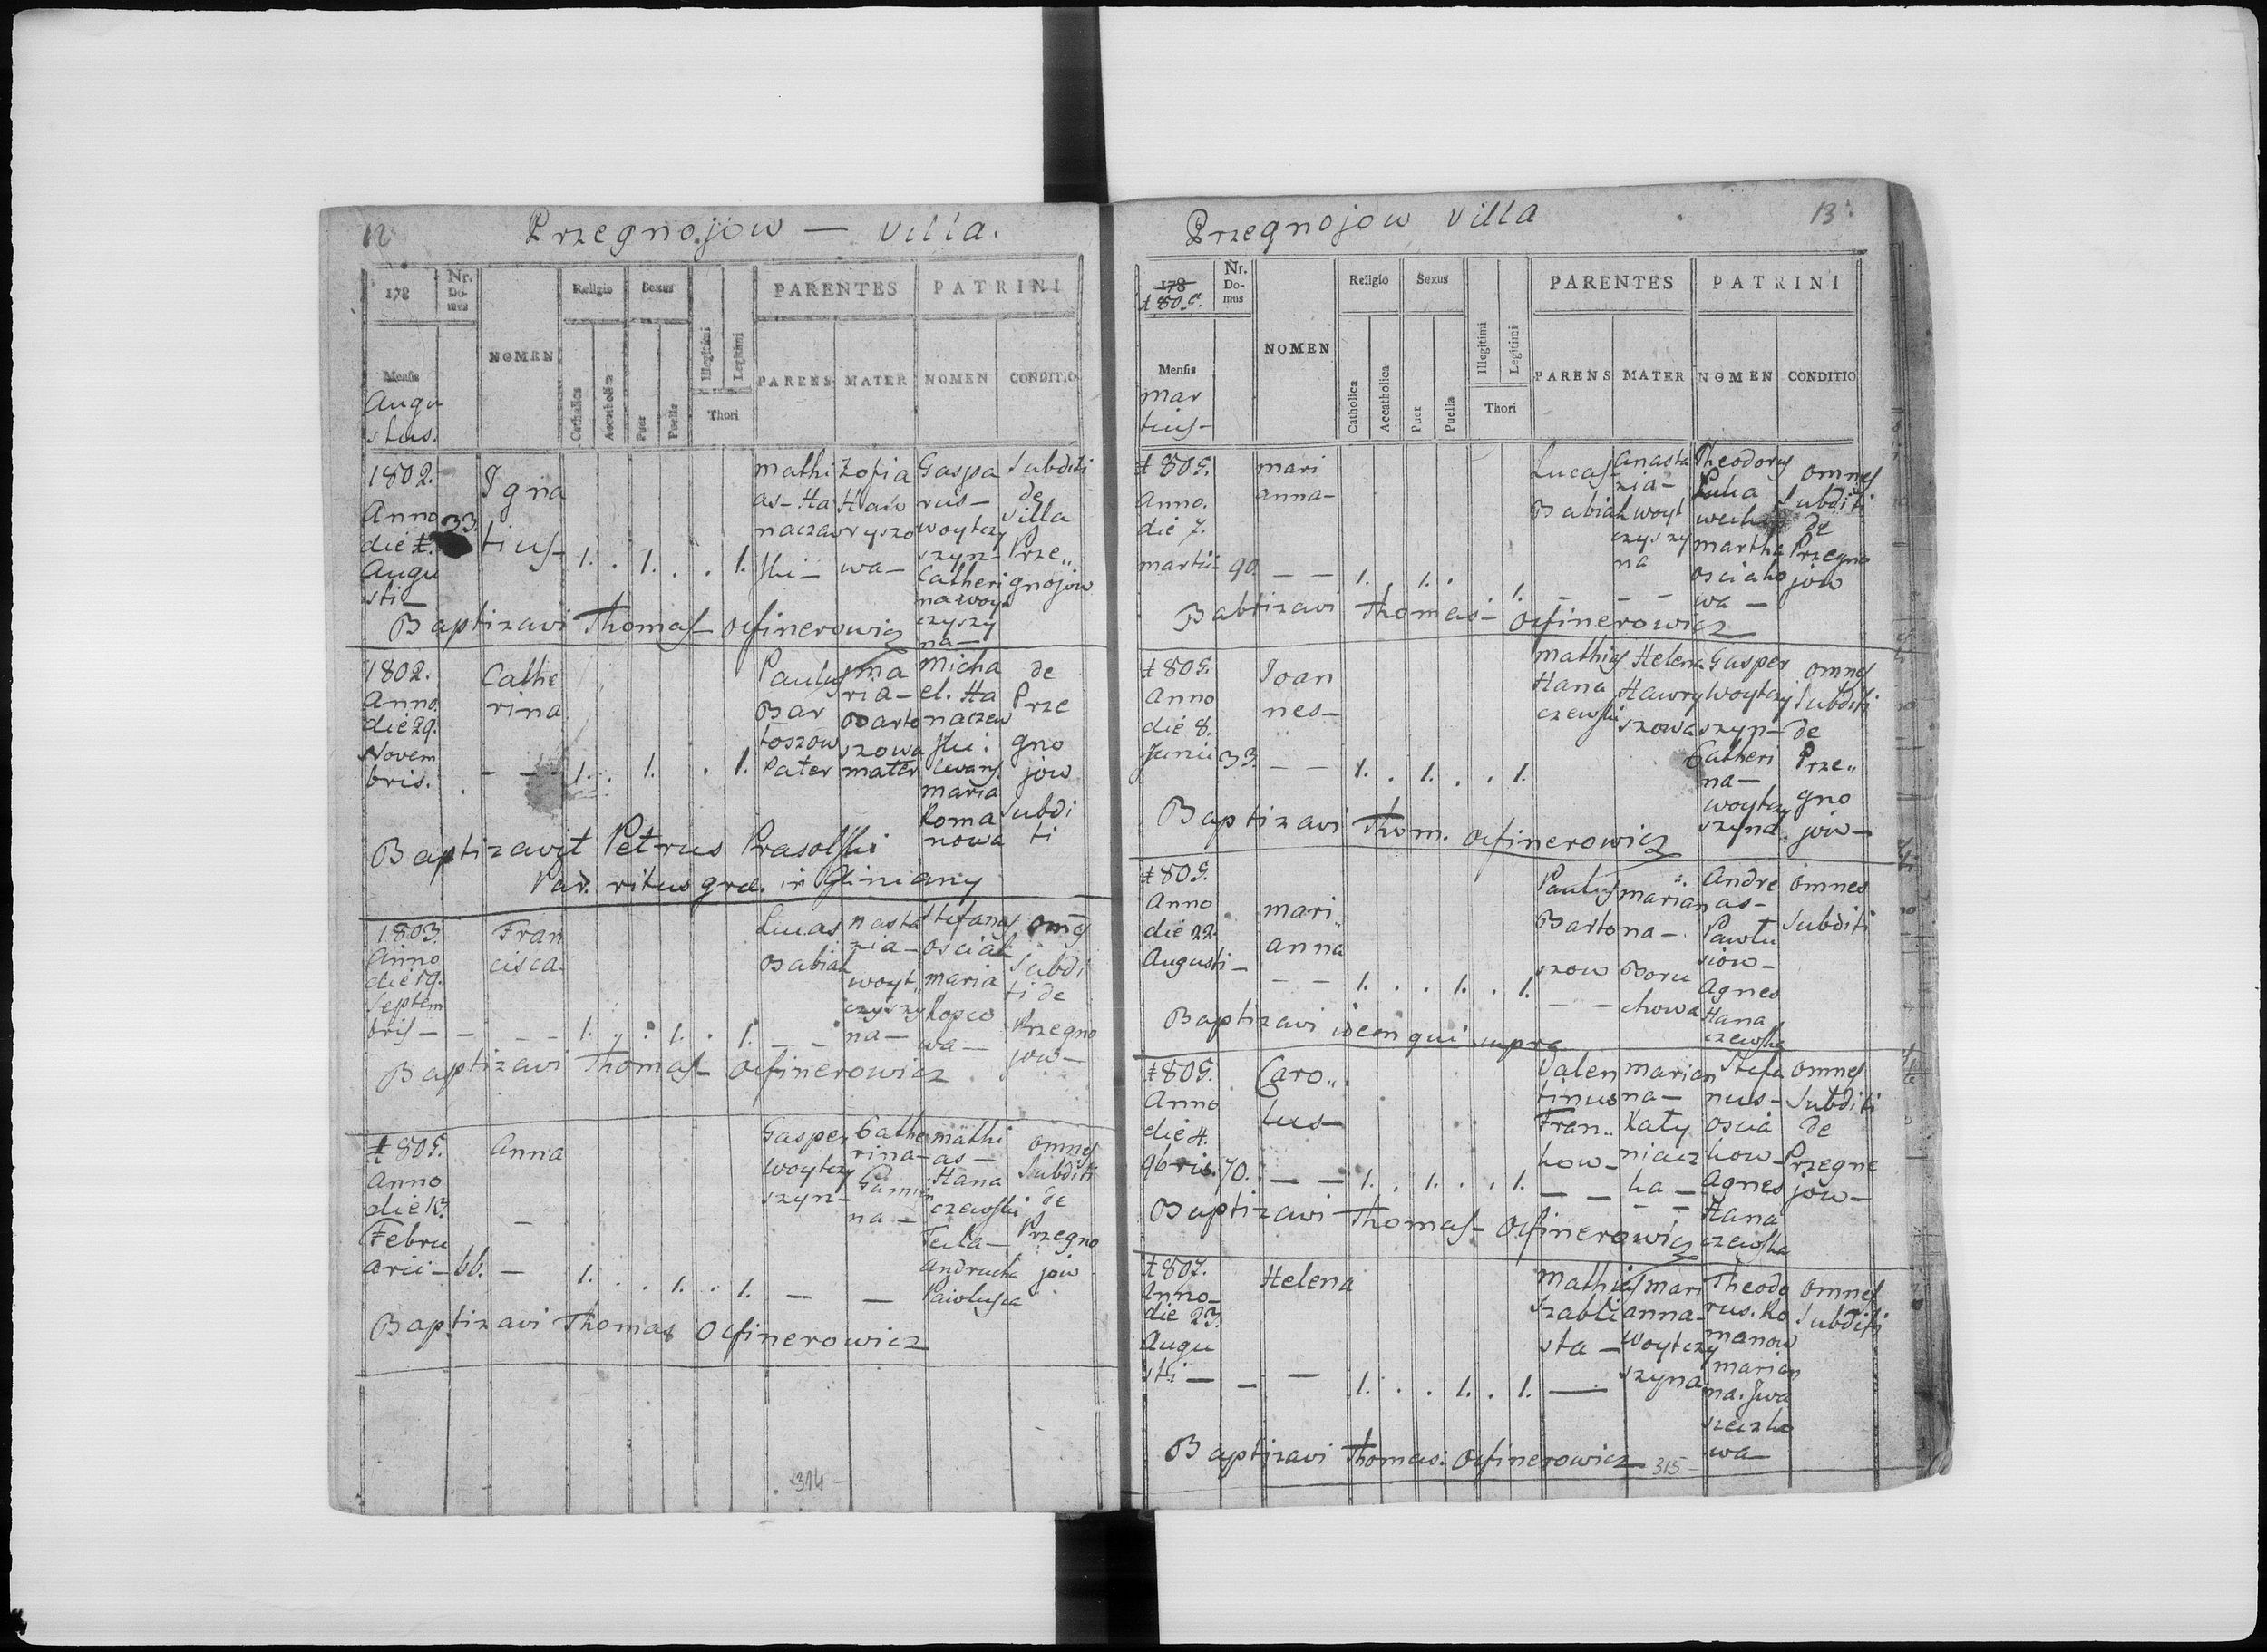 12
Przegnojow — villa.
178
Nr. Domus
NOMEN
Religio
Sexus
PARENTES
PATRINI
Mensis
Catholica
Accatholica
Puer
Puella
Illegitimi
Legitimi
Thori
PARENS
MATER
NOMEN
CONDITIO
Augu
stus.
1802.
Anno
die 1.
Augu
sti —
33
Igna
tius —
1. . 1. . . 1.
mathi
as — Ha
naczew
ski —
Zofia
Haw
ryszo
wa —
Gaspa
rus —
woytczy
szyn —
Catheri
na woyt
czyszy
na —
Subditi
de
villa
Prze„
gnojow
Baptizavi Thomas — Ocfinerowicz
1802.
Anno
die 29.
Novem
bris.
Cathe
rina
1. . 1. . 1.
Paulus
Bar
toszow
Pater
ma
ria —
Barto
szowa
mater
micha
el. Ha
naczew
ski.
levans.
maria
Roma
nowa
de
Prze
gno
jow
Subdi
ti
Baptizavit Petrus Prasolski
Par. ritus græ. in Gliniany
1803.
Anno
die 19.
Septem
bris —
Fran
cisca.
1. . . 1. . 1.
Lucas
Babiak
nasta
zia —
woyt„
czyszy
na —
Stefanus
Osciak
maria
Kosco
wa —
omēs
Subdi
ti de
Przegno
jow —
Baptizavi Thomas — Ocfinerowicz
1805.
Anno
die 13.
Febru
arii — 66.
Anna
1. . . 1. . 1.
Gasper
woytczy
szyn —
Cathe
rina —
na —
mathi
as —
Hana
czewski
Tecla —
omnes
Subditi
de
Przegno
jow
Baptizavi Thomas Ocfinerowicz
314
Przegnojow villa
13
178
1805.
Nr. Domus
NOMEN
Religio
Sexus
PARENTES
PATRINI
Mensis
Catholica
Accatholica
Puer
Puella
Illegitimi
Legitimi
Thori
PARENS
MATER
NOMEN
CONDITIO
mar
tius —
1805.
Anno.
die 7.
martii — 90.
mari
anna —
1. . 1. . 1.
Lucas
Babiak
Anasta
zia —
woyt
czyszy
na
Theodorus
martha
osciako
wa —
omnes
Subditi
de
Przegno
jow
Babtizavi Thomas — Ocfinerowicz
1805.
Anno
die 8.
Junii 33.
Joan
nes —
1. . 1. . . 1.
mathias
Hana
czewski
Helena
Hawry
szowa
Gasper
woytczy
szyn —
Catheri
na —
woytczy
szyna
omnes
Subditi
de
Prze„
gno
jow —
Baptizavi Thom. Ocfinerowicz
1805.
Anno
die 22
Augusti —
mari„
anna
1. . . 1. . 1.
Paulus
Barto
szow
marian
na —
Boru
chowa
Andre
as —
Pawlu
siow —
Agnes
Hana
czewska
omnes
Subditi
Baptizavi idem qui supra
1805.
Anno
die 4.
9bris. 70.
Caro„
lus —
1. . 1. . . 1.
Valen
tinus
Fran„
kow —
marian
na —
Katy
niacz
ka —
Stefa
nus —
Oscia
kow —
Agnes
Hana
czewska
omnes
Subditi
de
Przegne
jow —
Baptizavi Thomas — Ocfinerowicz
1807.
Anno —
die 23.
Augu
sti —
Helena
1. . . 1. . 1.
Mathias
Szabli
sta —
mari
anna —
Woytczy
szyna
Theodo
rus. Ro
manow
marian
na. Iwa
szeczko
wa —
omnes
Subditi
Baptizavi Thomas. Ocfinerowicz
315